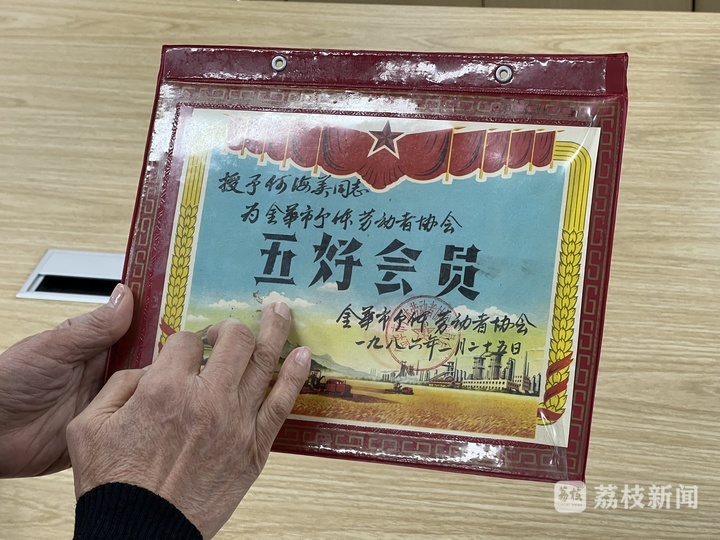 授予何海美同志
为金华市个体劳动者协会
五好会员
金华市个体劳动者协会
一九八六年二月二十五日
荔枝新闻